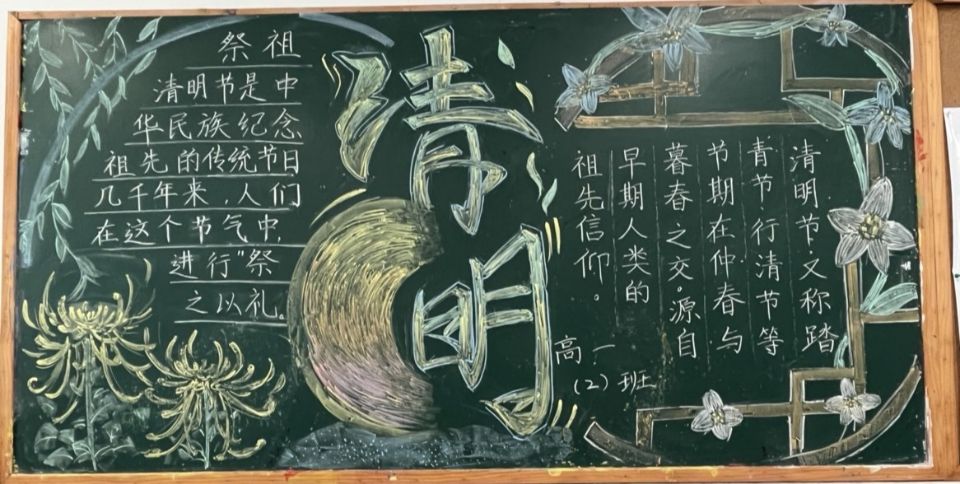 祭祖
清明节是中
华民族纪念
祖先的传统节日
几千年来,人们
在这个节气中
进行"祭
之以礼。
清明
清明节又称踏
青节行清节等
节期在仲春与
暮春之交。源自
早期人类的
祖先信仰。
高一
(2)班